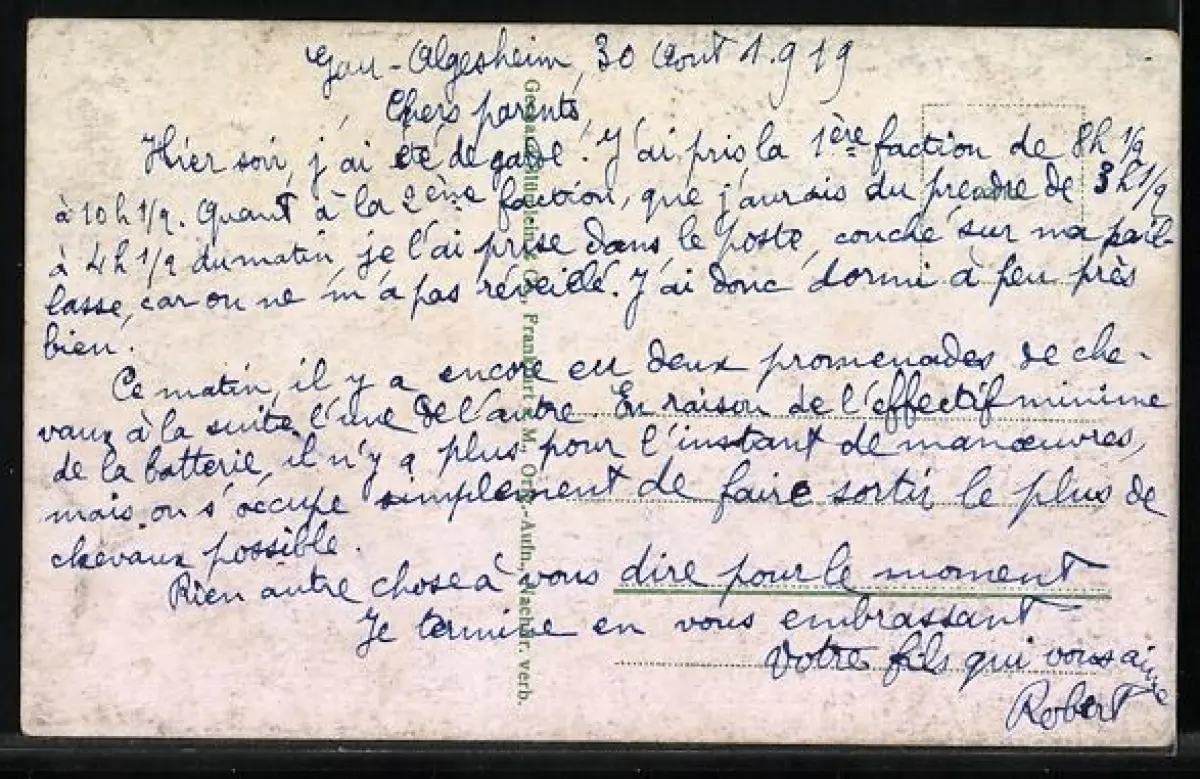 Gau-Algesheim, 30 Aout 1.919
Chers parents,
Hier soir, j'ai été de garde. J'ai pris la 1ère faction de 8h 1/2
à 10h 1/2. Quant à la 2ème faction, que j'aurais du prendre de 3h 1/2
à 4h 1/2 du matin, je l'ai prise dans le poste, couché sur ma pail-
lasse, car on ne m'a pas réveillé. J'ai donc dormi à peu près
bien.
Ce matin, il y a encore eu deux promenades de che-
vaux à la suite l'une de l'autre. En raison de l'effectif minime
de la batterie, il n'y a plus pour l'instant de manœuvres,
mais on s'occupe simplement de faire sortir le plus de
chevaux possible.
Rien autre chose à vous dire pour le moment
Je termine en vous embrassant
Votre fils qui vous aime
Robert
Frankfurt a. M., Orig.-Aufn., Nachdr. verb.